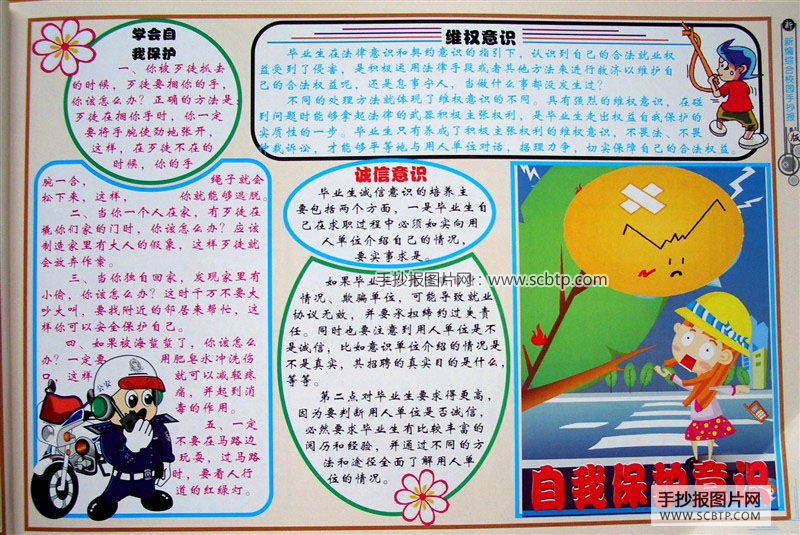 学会自
我保护
一、你被歹徒抓去
的时候，歹徒要捆你的手，
你该怎么办？正确的方法是：
歹徒在捆你手时，你一定
要将手腕使劲地张开，
这样，在歹徒不在的
时候，你的手
腕一合，绳子就会
松下来，这样，你就能够逃脱。
二、当你一个人在家，有歹徒在
撬你们家的门时，你该怎么办？应该
制造家里有大人的假象，这样歹徒就
会放弃作案。
三、当你独自回家，发现家里有
小偷，你该怎么办？这时千万不要大
吵大叫，要找附近的邻居来帮忙，这
样你可以安全保护自己。
四、如果被海蜇蜇了，你该怎么
办？一定要用肥皂水冲洗伤
口，这样就可以减轻疼
痛，并起到消
毒的作用。
五、一定
不要在马路边
玩耍，过马路
时，要看人行
道的红绿灯。
公安
维权意识
毕业生在法律意识和契约意识的指引下，认识到自己的合法就业权
益受到了侵害，是积极运用法律手段或者其他方法来进行救济以维护自
己的合法权益呢，还是息事宁人，当做什么事都没发生过？
不同的处理方法就体现了维权意识的不同。具有强烈的维权意识，在碰
到问题时能够拿起法律的武器积极主张权利，是毕业生走出权益自我保护的
实质性的一步。毕业生只有养成了积极主张权利的维权意识，不畏法、不畏
仲裁诉讼，才能够平等地与用人单位对话，据理力争，切实保障自己的合法权益。
诚信意识
毕业生诚信意识的培养主
要包括两个方面，一是毕业生自
己在求职过程中必须如实向用
人单位介绍自己的情况，
要实事求是。
手抄报图片网：www.scbtp.com
如果毕业生
情况、欺骗单位，可能导致就业
协议无效，并要承担缔约过失责
任。同时也要注意到用人单位是不
是诚信，比如意识单位介绍的情况是
不是真实，其招聘的真实目的是什么，
等等。
第二点对毕业生要求得更高，
因为要判断用人单位是否诚信，
必然要求毕业生有比较丰富的
阅历和经验，并通过不同的方
法和途径全面了解用人单
位的情况。
自我保护意识
新
新编综合校园手抄报
版
手抄报图片网
WWW.SCBTP.COM